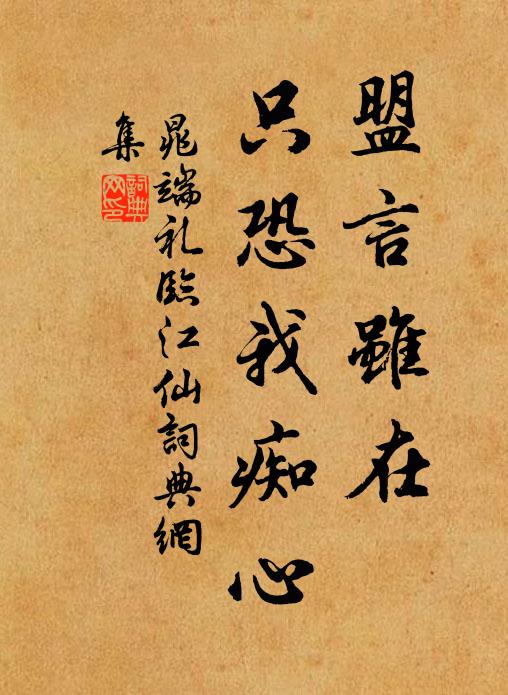 盟言雖在
只恐我痴心
晁端礼臨江仙詞典網
集
詞典网印